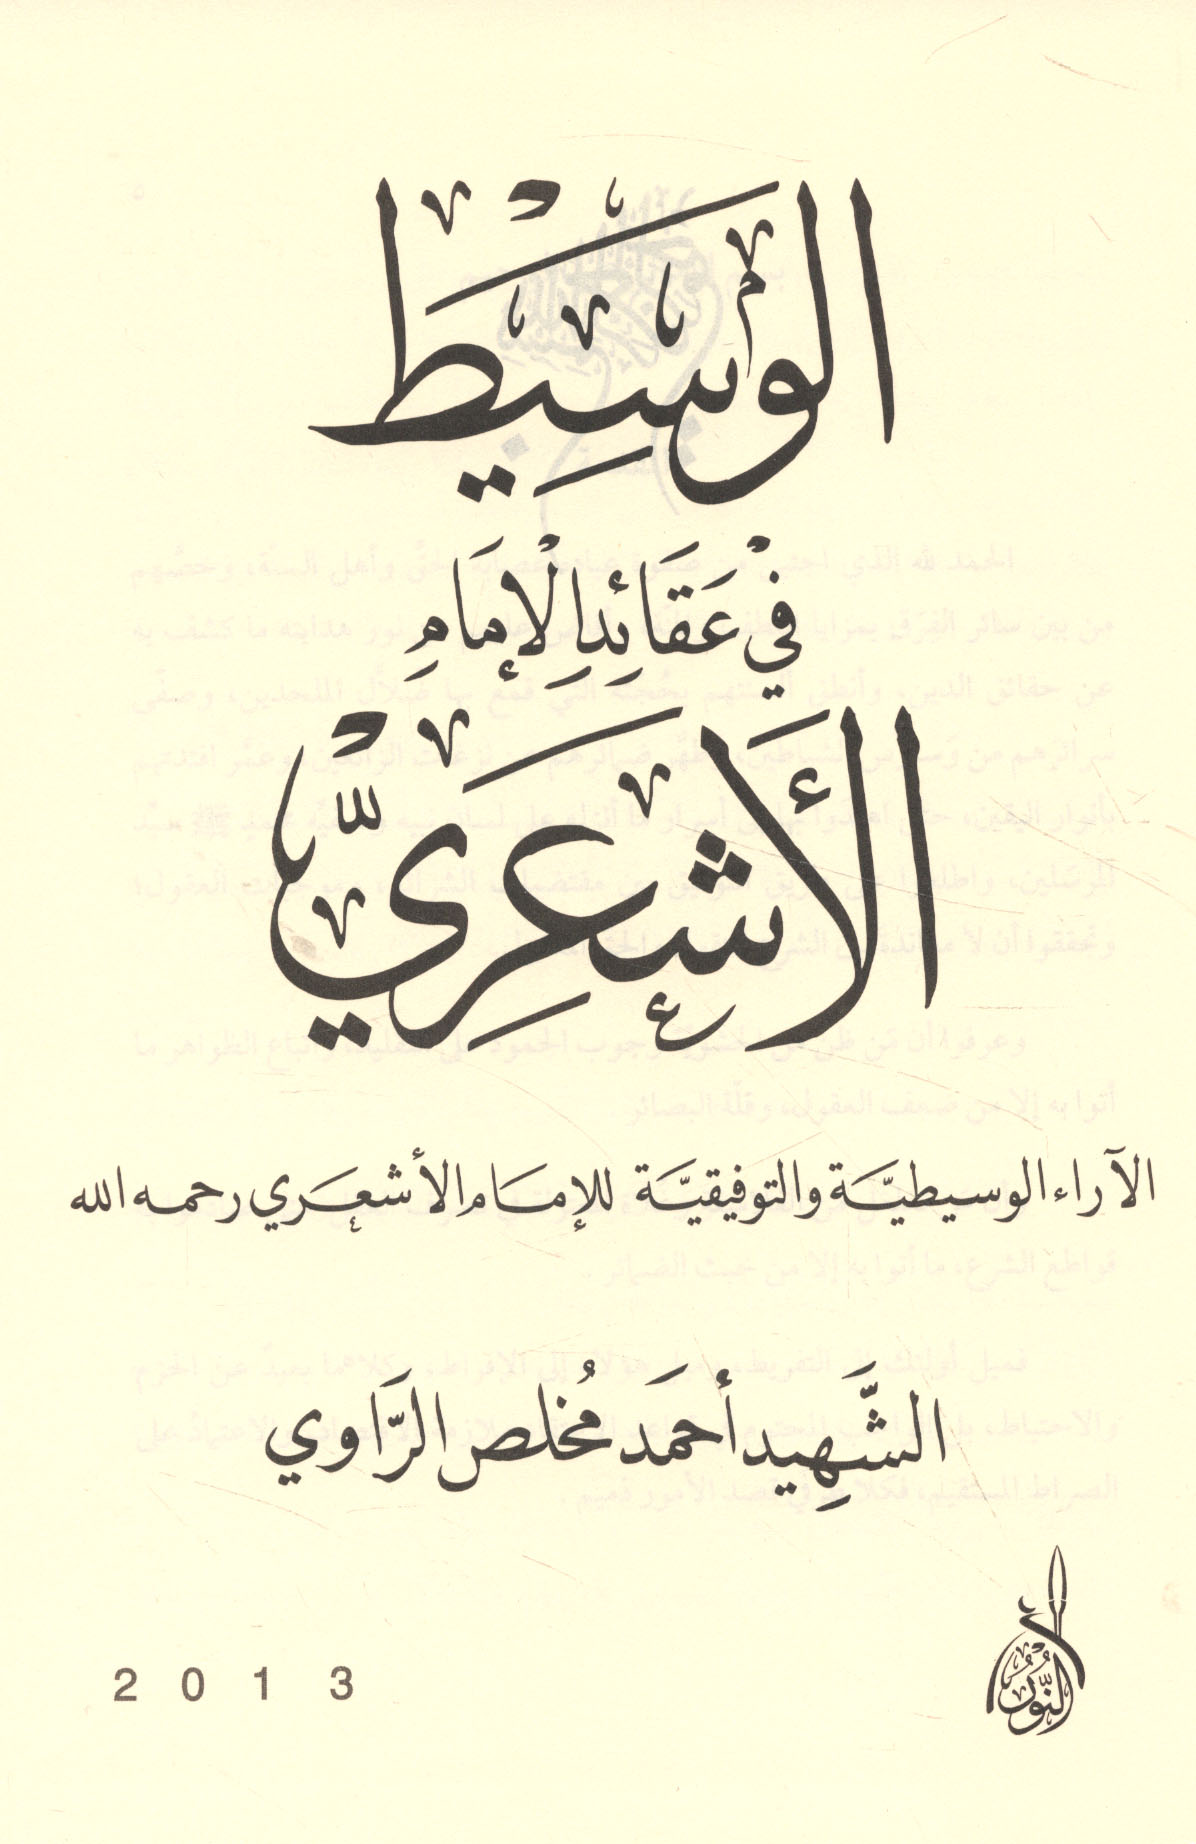 الوَسِيْط
فيْ عَقَائِدِ الْإمَامِ
الأَشعَرِيّ
الآراء الوسيطيَّة والتوفيقيَّة للإمَام الأشعَري رحمه الله
الشَّهِيد أحمَد مُخلص الرَّاوي
النُّورُ
2013